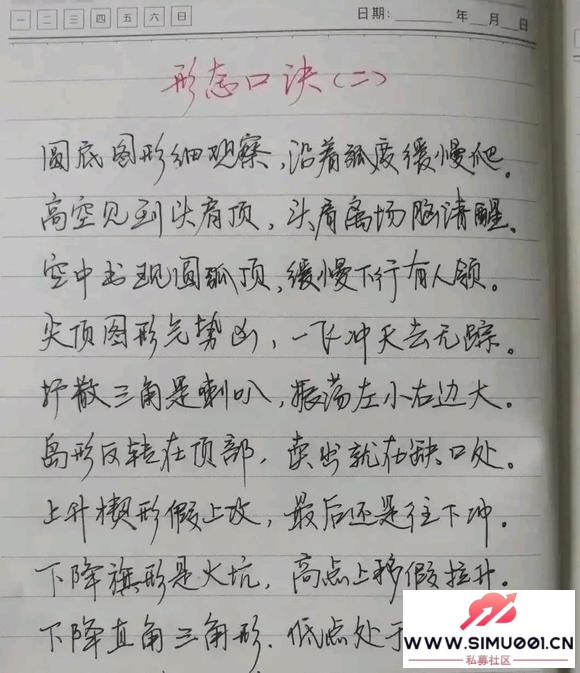 一 二 三 四 五 六 日 日期: 年 月 日
形态口诀(二)
圆底图形细观察,沿着弧度缓慢爬。
高空见到头肩顶,头肩离场脑清醒。
空中出现圆弧顶,缓慢下行有人领。
尖顶图形气势凶,一飞冲天去无踪。
扩散三角是喇叭,振荡左小右边大。
岛形反转在顶部,卖出就在缺口处。
上升楔形假上攻,最后还是往下冲。
下降旗形是火坑,高点上移假拉升。
下降直角三角形.低点处于
WWW.SIMU001.CN
私募社区